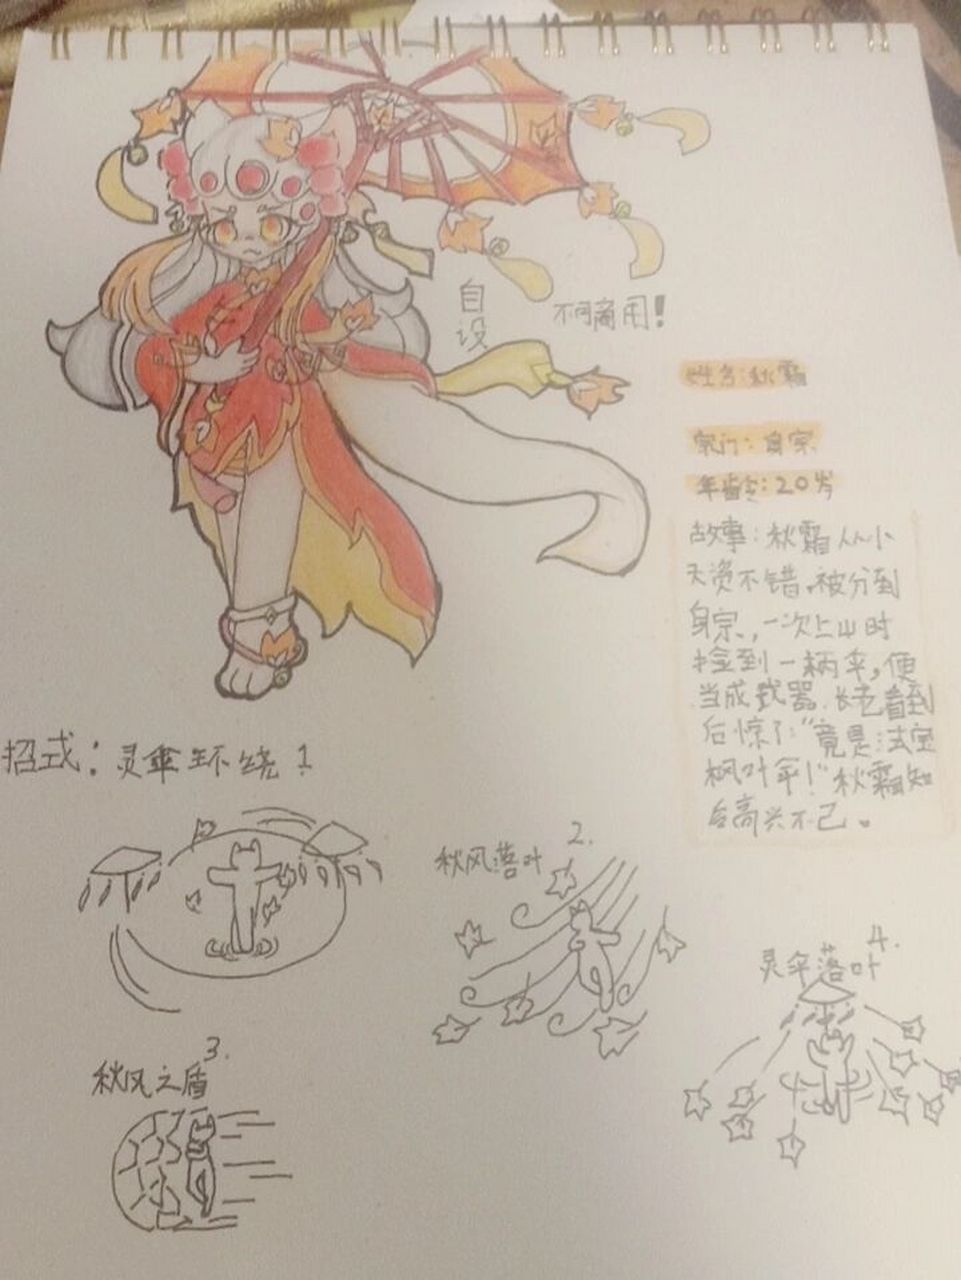 自设
不可商用!
姓名:秋霜
宗门:身宗
年龄:20岁
故事:秋霜从小
天资不错,被分到
身宗,一次上山时
捡到一柄伞,便
当成武器.长老看到
后惊了:“竟是法宝
枫叶伞!”秋霜知
后高兴不已。
招式:灵伞环绕1
秋风落叶2.
3.
秋风之盾
灵伞落叶4.